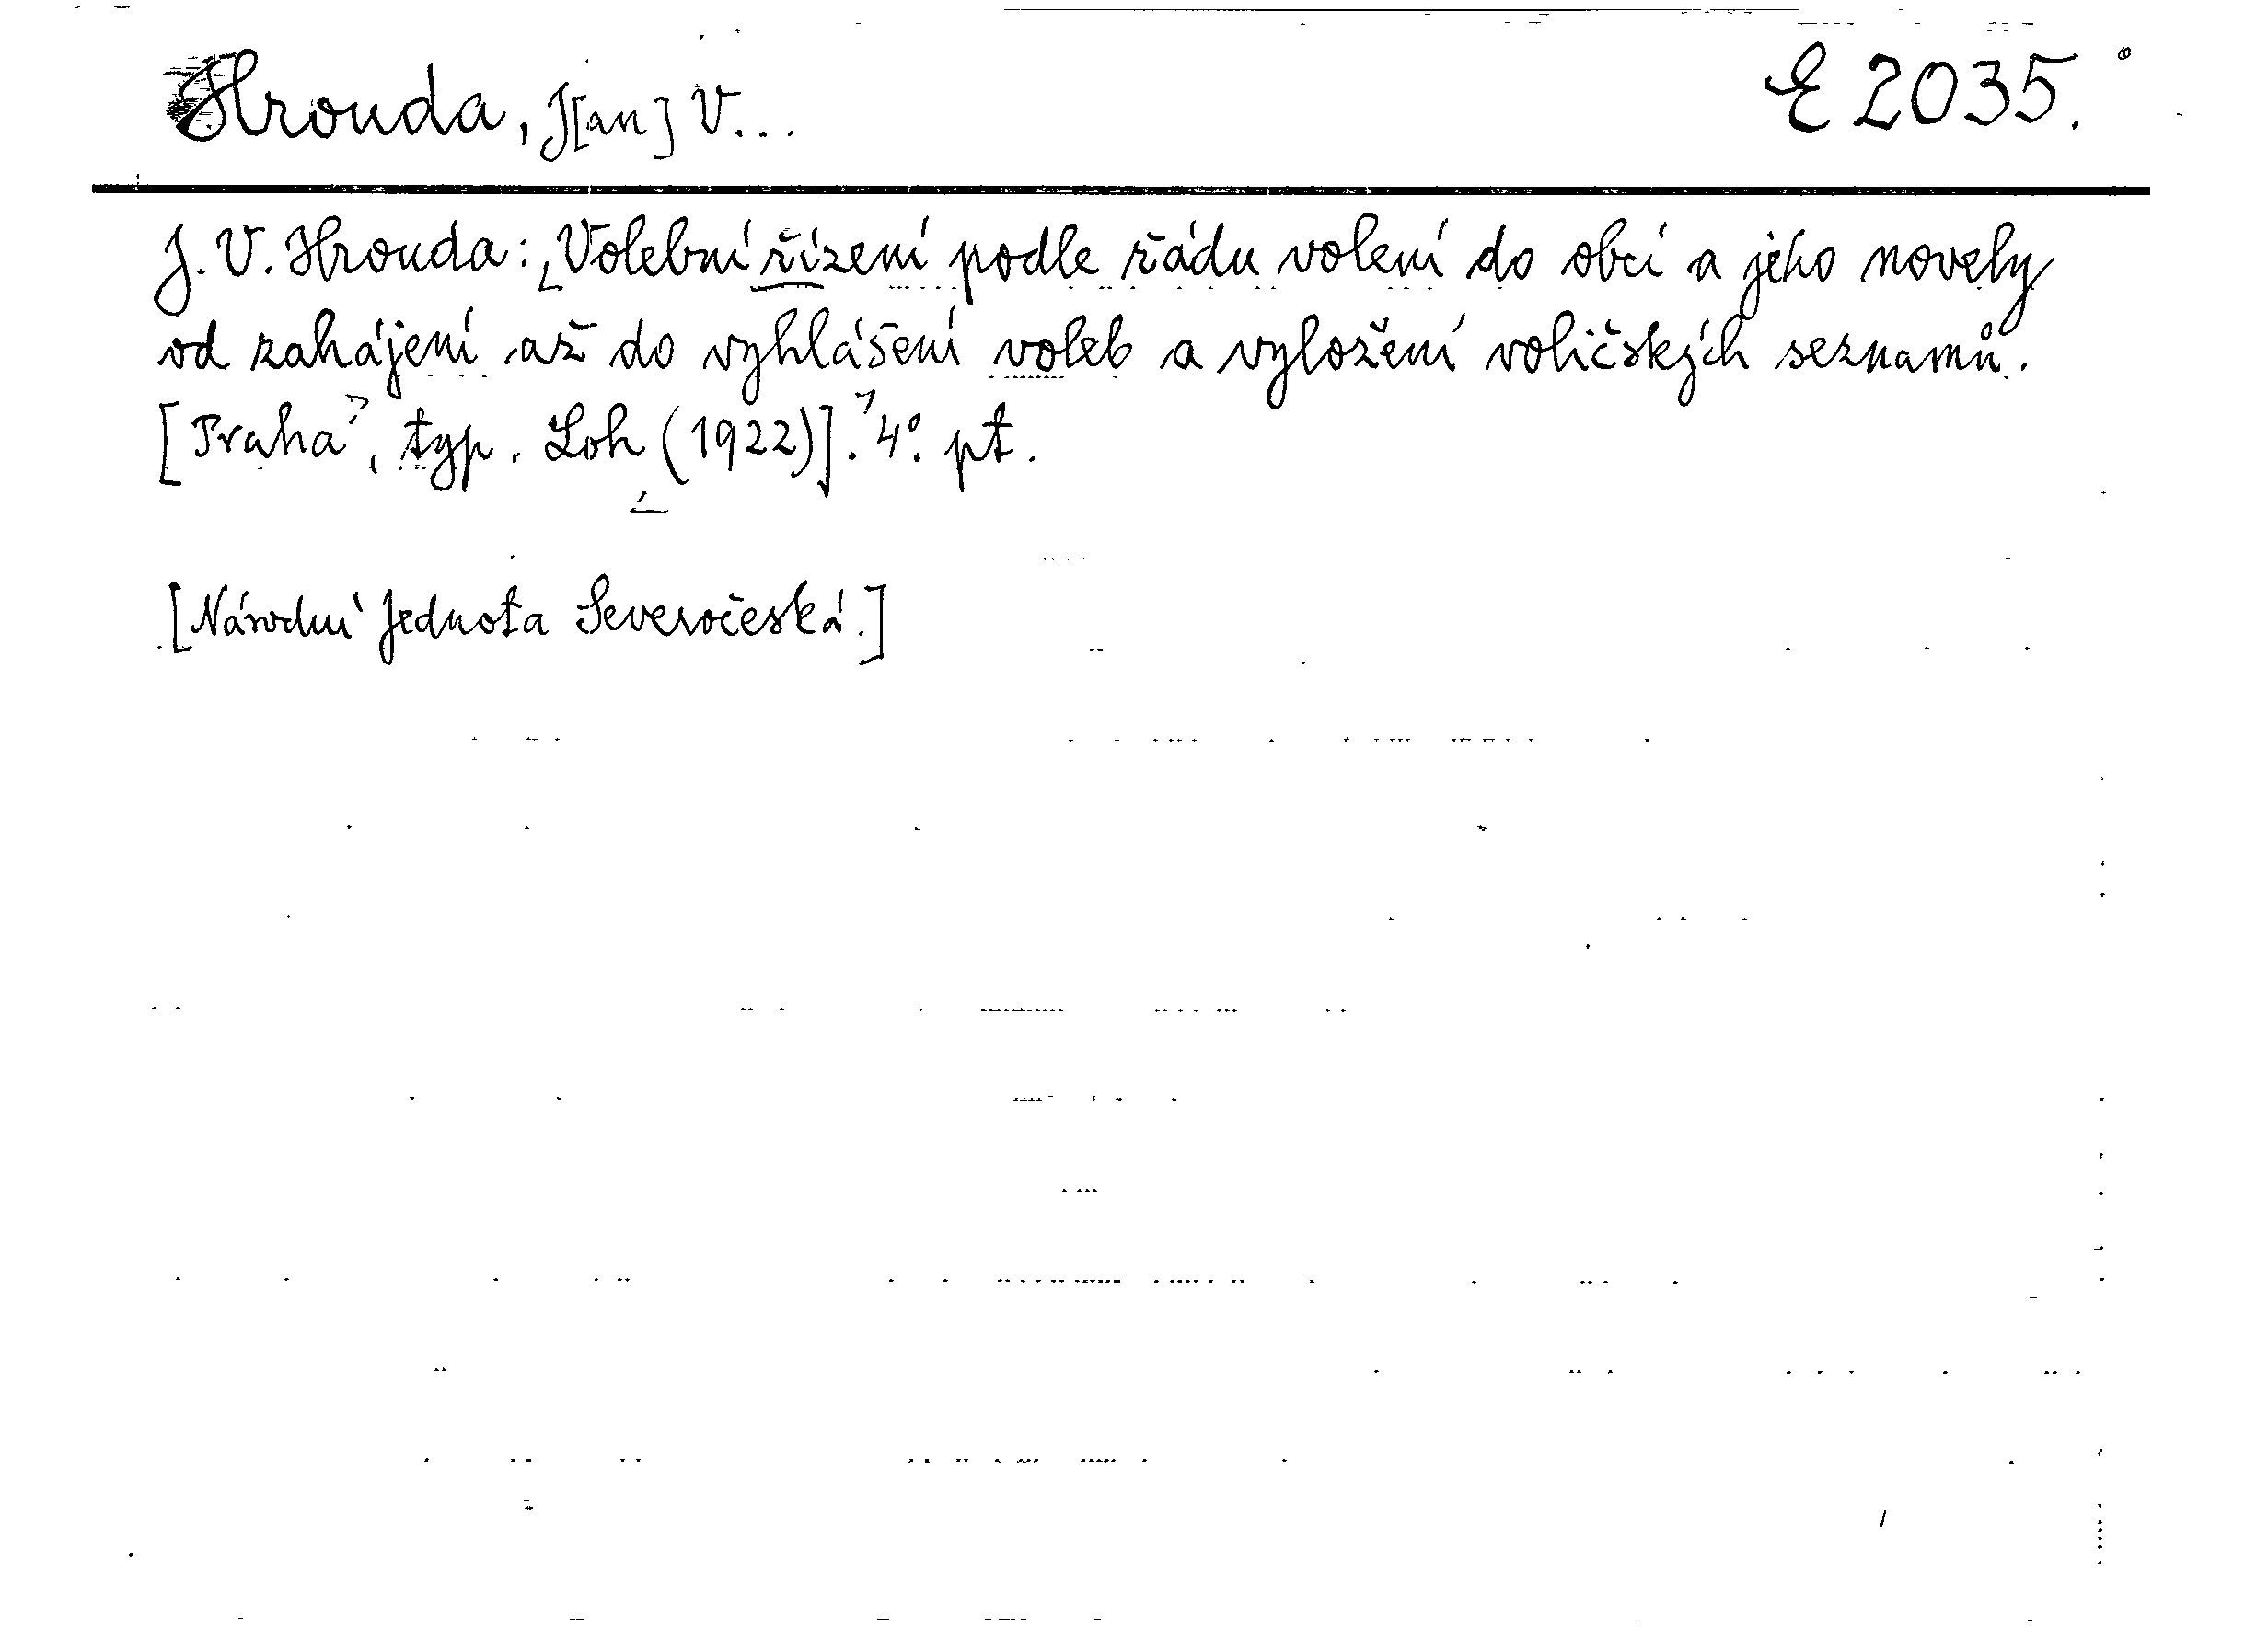 Hrouda, J[an] V... E 2035.
J. V. Hrouda: Volební řízení podle řádu volení do obcí a jeho novely
od zahájení až do vyhlášení voleb a vyložení voličských seznamů.
[Praha, typ. Loh (1922)]. 4°. pt.
[Národní Jednota Severočeská.]